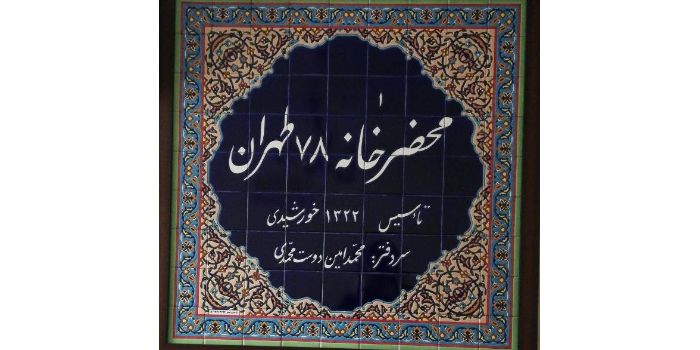 محضرخانه ۷۸ طهران
تأسیس ۱۳۲۲ خورشیدی
سردفتر: محمدامین دوست محمدی